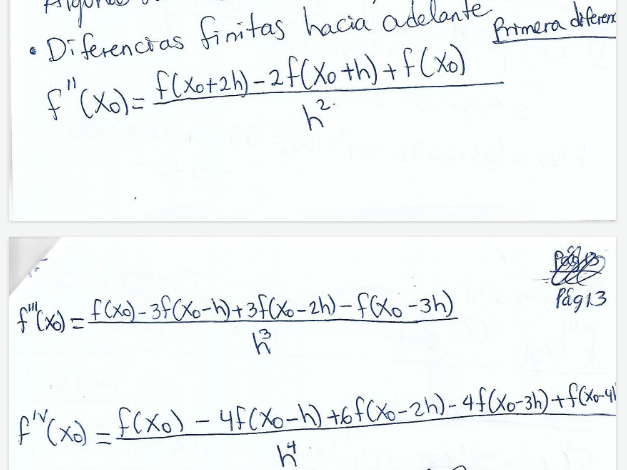 • Diferencias finitas hacia adelante Primera
f''(x₀) = f(x₀+2h) - 2f(x₀+h) + f(x₀) / h²
Pág13
f'''(x₀) = f(x₀) - 3f(x₀-h) + 3f(x₀-2h) - f(x₀-3h) / h³
f'ᴵⱽ(x₀) = f(x₀) - 4f(x₀-h) + 6f(x₀-2h) - 4f(x₀-3h) + f(x₀-4h / h⁴